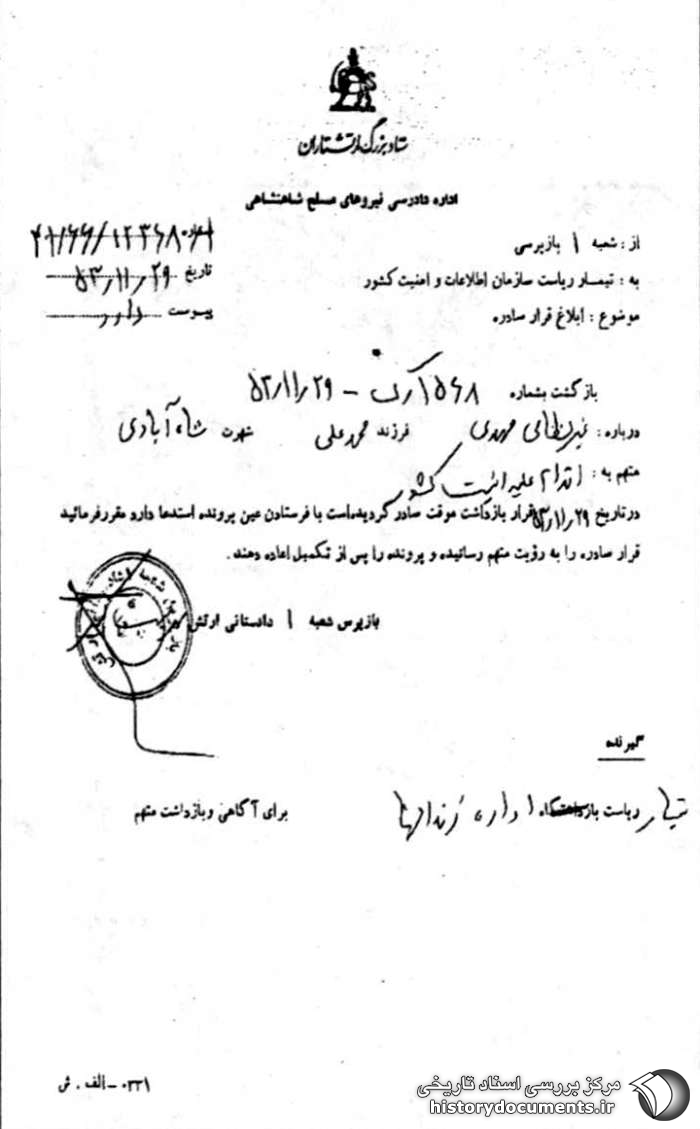 ستاد بزرگ ارتشتاران
اداره دادرسی نیروهای مسلح شاهنشاهی
از : شعبه ۱ بازپرسی
به : تیمسار ریاست سازمان اطلاعات و امنیت کشور
موضوع : ابلاغ قرار صادره
شماره
تاریخ ۵۳٫۱۱٫۲۹
پیوست دارد
بازگشت بشماره
درباره : غیرنظامی مهدی فرزند محمدعلی شهرت شاه‌آبادی
متهم به : اقدام علیه امنیت کشور
در تاریخ ۵۳٫۱۱٫۲۹ قرار بازداشت موقت صادر گردیده‌است با فرستادن عین پرونده استدعا دارد مقرر فرمائید
قرار صادره را به رؤیت متهم رسانیده و پرونده را پس از تکمیل اعاده دهند .
بازپرس شعبه ۱ دادستانی ارتش
گیرنده
تیمسار ریاست اداره زندانها برای آگاهی و بازداشت متهم
۰۳۳۱ - الف . ش
مرکز بررسی اسناد تاریخی
historydocuments.ir